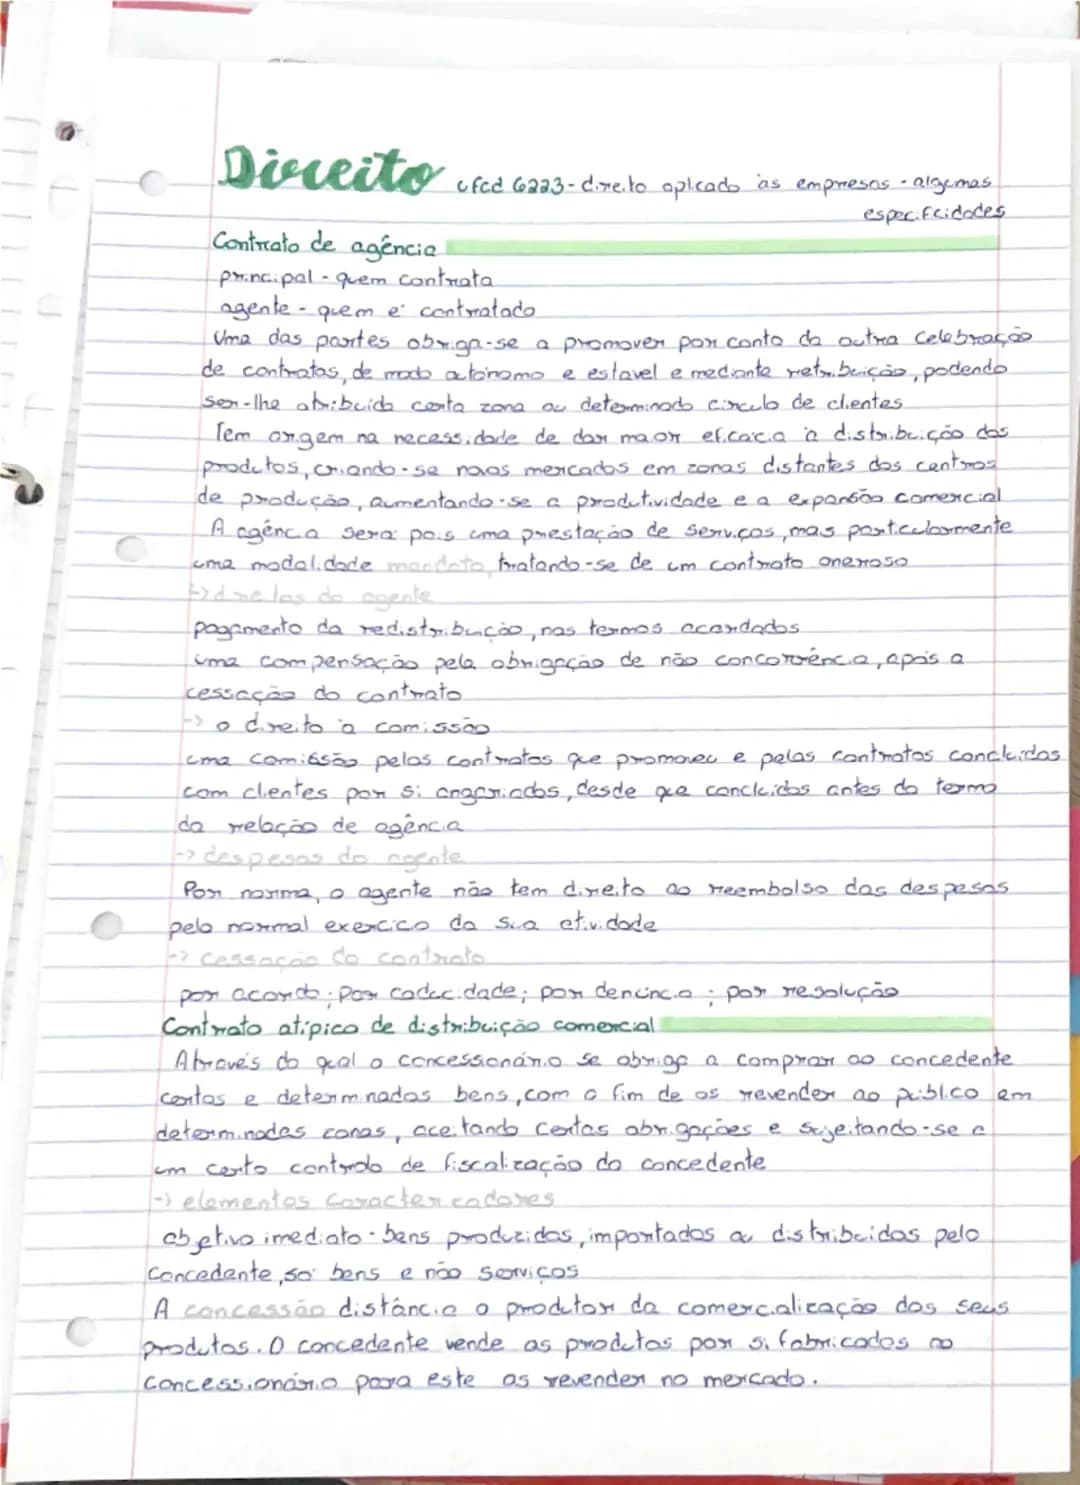 Direito ufcd 6223-direito aplicado às empresas - algumas
especificidades
Contrato de agência
principal - quem contrata
agente - quem é contratado
Uma das partes obriga-se a promover por conta da outra celebração
de contratos, de modo autónomo e estavel e mediante retribuição, podendo
ser-lhe atribuida certa zona ou determinado circulo de clientes
Tem origem na necessidade de dar maior eficácia à distribuição dos
produtos, criando-se novos mercados em zonas distantes dos centros
de produção, aumentando-se a produtividade e a expansão comercial
A agência será pois uma prestação de serviços, mas particularmente
uma modalidade mandato, tratando-se de um contrato oneroso
-> direitos do agente
pagamento da redistribuição, nos termos acordados
uma compensação pela obrigação de não concorrência, após a
cessação do contrato
-> o direito à comissão
uma comissão pelos contratos que promoveu e pelos contratos concluidos
com clientes por si angariados, desde que concluidos antes do termo
da relação de agência
-> despesas do agente
Por norma, o agente não tem direito ao reembolso das despesas
pelo normal exercico da sua atividade
-> cessação do contrato
por acordo; por caducidade; por denúncia; por resolução
Contrato atípico de distribuição comercial
Através do qual o concessionário se obriga a comprar ao concedente
certos e determinados bens, com o fim de os revender ao público em
determinadas zonas, aceitando certas obrigações e sujeitando-se a
um certo controlo de fiscalização do concedente
-> elementos caractericadores
objetivo imediato - bens produzidos, importados ou distribuidos pelo
concedente, só bens e não serviços
A concessão distância o produtor da comercialização dos seus
produtos. O concedente vende os produtos por si fabricados ao
concessionário para este os revender no mercado.